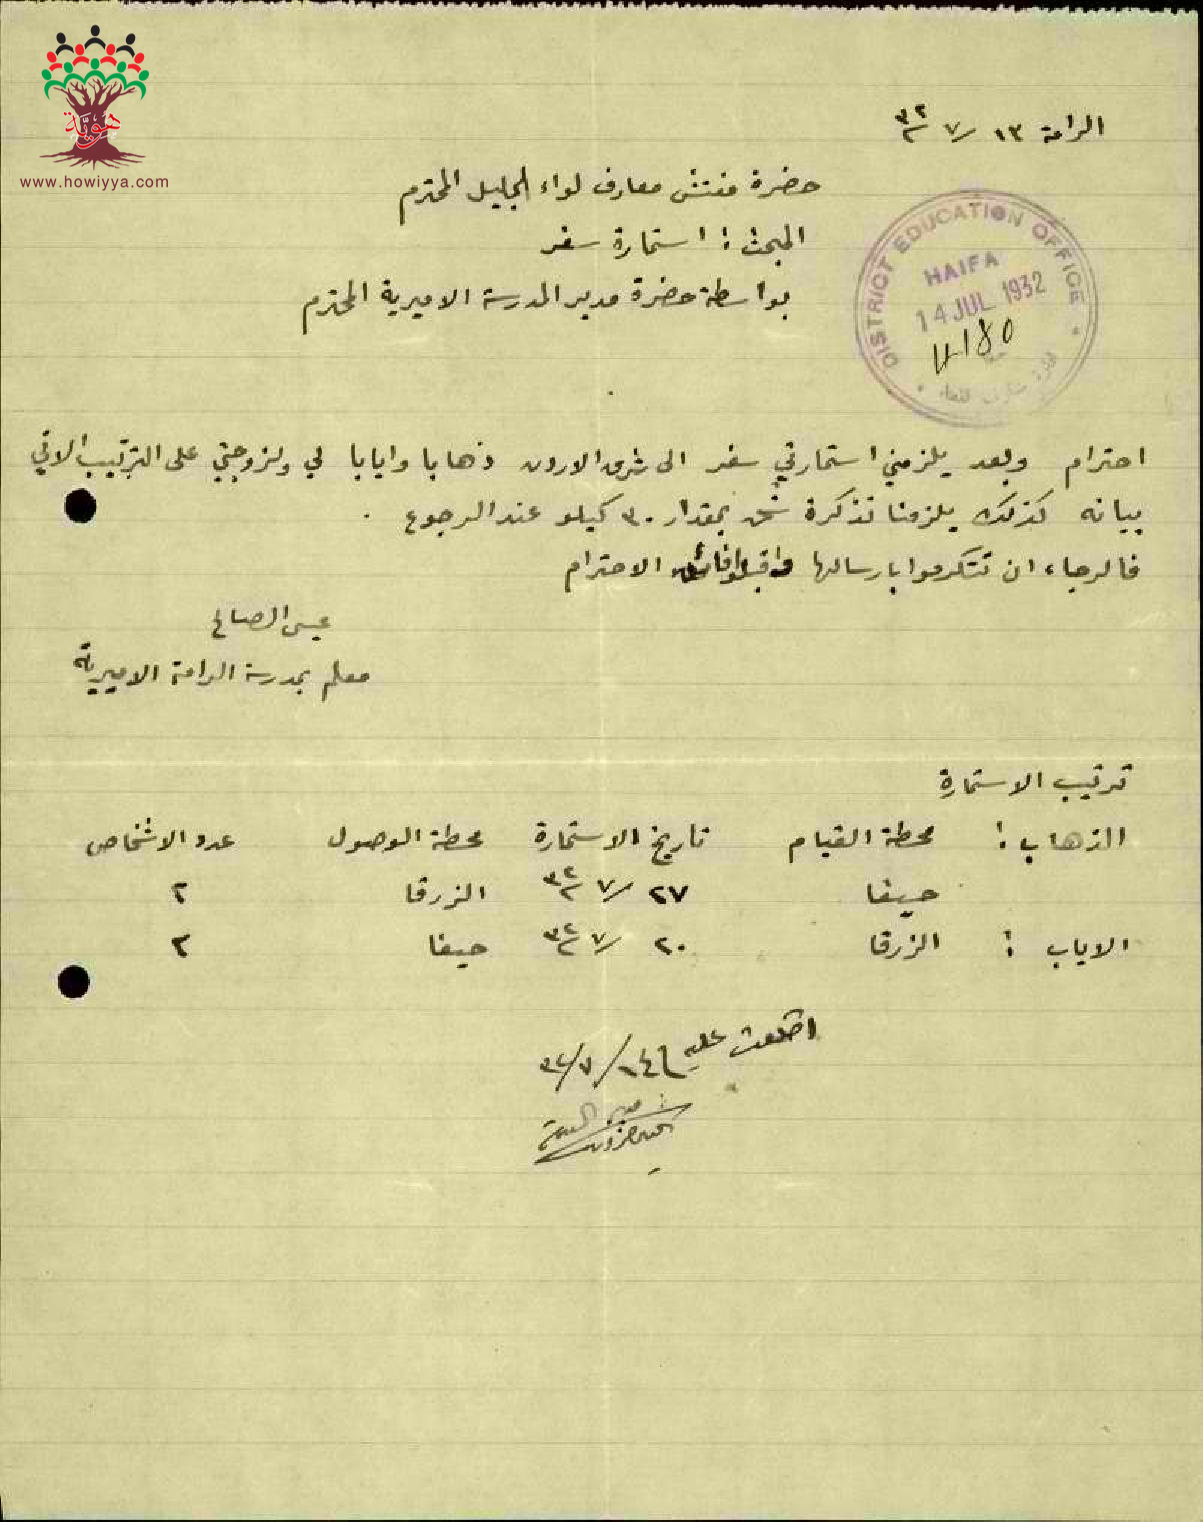 هوية
www.howiyya.com
الرامة ١٣ / ٧ / ٣٢
حضرة مفتش معارف لواء الجليل المحترم
المبحث : استمارة سفر
بواسطة حضرة مدير المدرسة الاميرية المحترم
DISTRICT EDUCATION OFFICE
HAIFA
14 JUL 1932
4180
احترام وبعد يلزمني استمارتي سفر الى شرق الاردن ذهابا وايابا لي ولزوجتي على الترتيب الاتي
بيانه كذلك يلزمنا تذكرة شحن بمقدار ٣٠ كيلو عند الرجوع .
فالرجاء ان تتكرموا بارسالها واقبلوا فائق الاحترام
عيسى الصالح
معلم بمدرسة الرامة الاميرية
ترتيب الاستمارة
الذهاب : محطة القيام تاريخ الاستمارة محطة الوصول عدد الاشخاص
حيفا ٢٧ / ٧ / ٣٢ الزرقا ٢
الاياب : الزرقا ٢٠ / ٧ / ٣٢ حيفا ٢
اطلعت عليه ١٤ / ٧ / ٣٢
مدير المدرسة